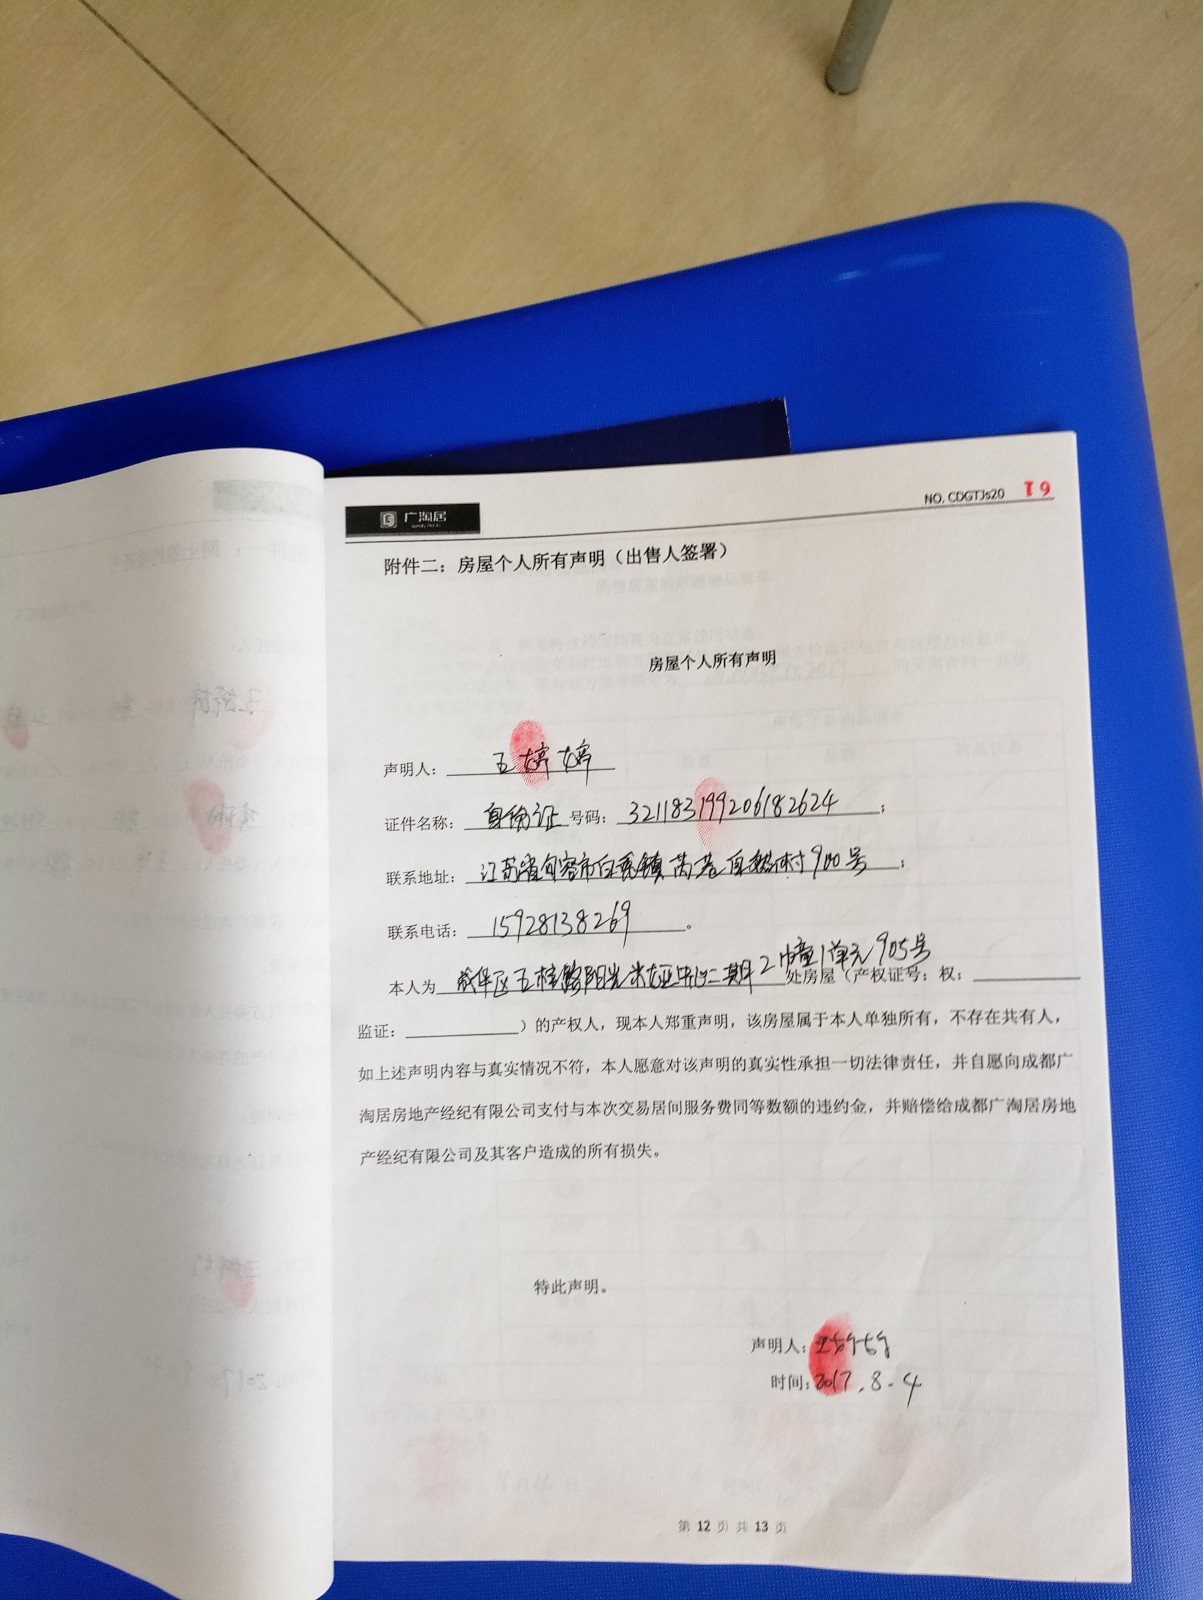 广淘居
NO. CDGTJs20 19
附件二：房屋个人所有声明（出售人签署）
房屋个人所有声明
声明人：王婷婷
证件名称：身份证 号码：321183199206182624；
联系地址：江苏省句容市白兔镇 自然村900号；
联系电话：15928138269。
本人为 成华区 二期2幢1单元905号 处房屋（产权证号：权：
监证： ）的产权人，现本人郑重声明，该房屋属于本人单独所有，不存在共有人，
如上述声明内容与真实情况不符，本人愿意对该声明的真实性承担一切法律责任，并自愿向成都广
淘居房地产经纪有限公司支付与本次交易居间服务费同等数额的违约金，并赔偿给成都广淘居房地
产经纪有限公司及其客户造成的所有损失。
特此声明。
声明人：王婷婷
时间：2017.8.4
第 12 页 共 13 页